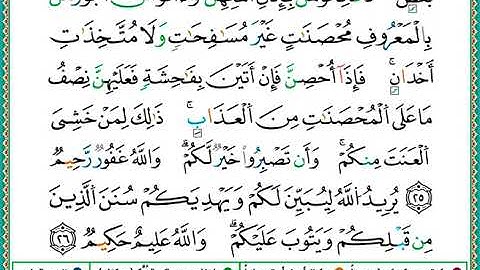 بِالْمَعْرُوفِ مُحْصَنَاتٍ غَيْرَ مُسَافِحَاتٍ وَلَا مُتَّخِذَاتِ
أَخْدَانٍ ۚ فَإِذَا أُحْصِنَّ فَإِنْ أَتَيْنَ بِفَاحِشَةٍ فَعَلَيْهِنَّ نِصْفُ
مَا عَلَى الْمُحْصَنَاتِ مِنَ الْعَذَابِ ۚ ذَٰلِكَ لِمَنْ خَشِيَ
الْعَنَتَ مِنكُمْ ۚ وَأَن تَصْبِرُوا خَيْرٌ لَّكُمْ ۗ وَاللَّهُ غَفُورٌ رَّحِيمٌ
۝٢٥ يُرِيدُ اللَّهُ لِيُبَيِّنَ لَكُمْ وَيَهْدِيَكُمْ سُنَنَ الَّذِينَ
مِن قَبْلِكُمْ وَيَتُوبَ عَلَيْكُمْ ۗ وَاللَّهُ عَلِيمٌ حَكِيمٌ ۝٢٦